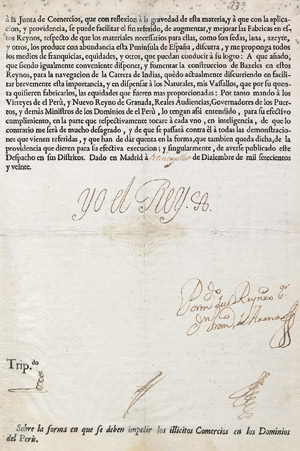 à la Junta de Comercios, que con reflexiòn à la gravedad de esta materia, y à que con la aplica-
cion, y providencia, se puede facilitar el fin referido, de augmentar, y mejorar las Fabricas en es-
tos Reynos, respecto de que los materiales necessarios para ellas, como son sedas, lana, azeyte,
y otros, los produce con abundancia esta Peninsula de España, discurra, y me proponga todos
los medios de franquicias, equidades, y otros, que puedan conducir à su logro: A que añado,
que siendo igualmente conveniente disponer, y fomentar la construccion de Baxeles en estos
Reynos, para la navegacion de la Carrera de Indias, quedo actualmente discurriendo en facili-
tar brevemente esta importancia, y en dispensar à los Naturales, mis Vassallos, que por su cuen-
ta quisieren fabricarlos, las equidades que fueren mas proporcionadas: Por tanto mando à los
Virreyes de el Perù, y Nuevo Reyno de Granada, Reales Audiencias, Governadores de los Puer-
tos, y demàs Ministros de los Dominios de el Perù, lo tengan assi entendido, para su efectivo
cumplimiento, en la parte que respectivamente tocare à cada vno, en inteligencia, de que lo
contrario me serà de mucho desagrado, y de que se passarà contra èl à todas las demonstracio-
nes que vienen referidas, y que han de dàr quenta en la forma, que tambien queda dicha, de la
providencia que dieren para su efectiva execucion; y singularmente, de averse publicado este
Despacho en sus Distritos. Dado en Madrid à de Diziembre de mil setecientos
y veinte.
Yo el Rey
Por mdo del Rey nro sr
Trip.do
Sobre la forma en que se deben impedir los illicitos Comercios en los Dominios
del Perù.